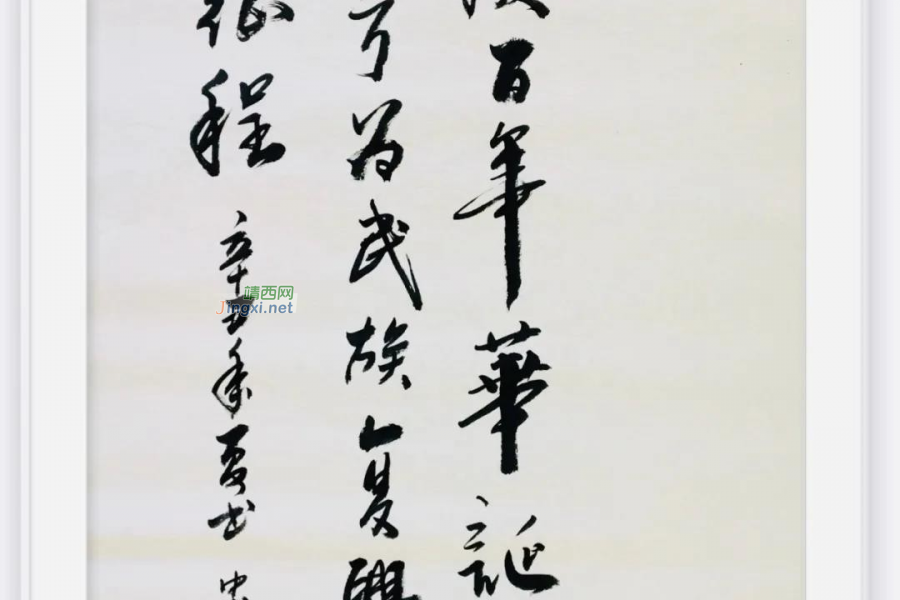 百年華誕
为民族复興
征程
辛丑年夏书
靖西网
Jingxi.net